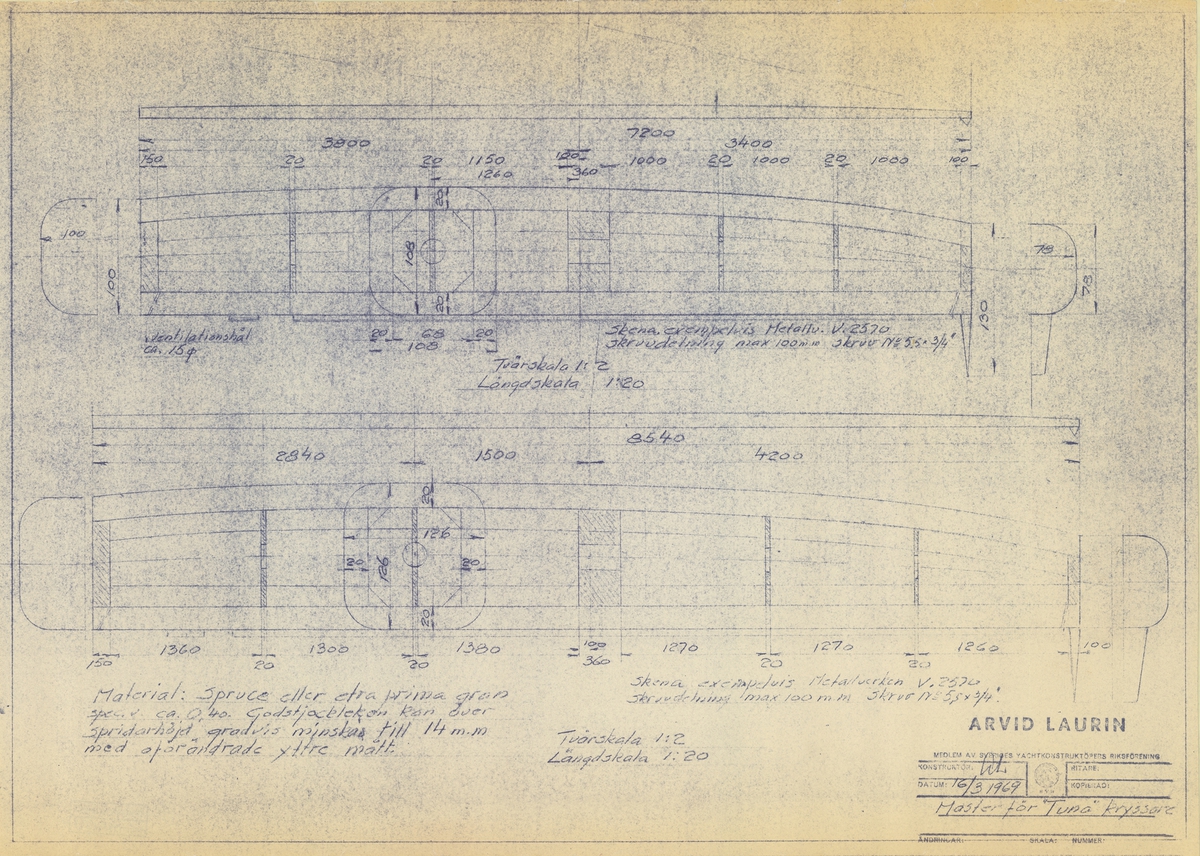 7200
3800
3400
150
20
20
1150
100
1000
20
1000
20
1000
100
1260
360
20
100
100
108
78
78
130
20
20
68
20
108
Ventilationshål
ca. 15φ
Skena exempelvis Metallv. V. 2570
skruvdelning max 100 mm skruv No 5,5 x 3/4"
Tvärskala 1:2
Längdskala 1:20
8540
2840
1500
4200
20
126
126
20
20
20
1360
1300
1380
100
1270
1270
1260
100
150
20
20
360
20
20
Material: Spruce eller etra prima gran
spec.v. ca. 0,40. Godstjockleken kan över
spridarhöjd gradvis minskas till 14 m.m
med oförändrade yttre mått.
Skena exempelvis Metallverken V. 2570
Skruvdelning max 100 m.m Skruv No 5,5 x 3/4"
Tvärskala 1:2
Längdskala 1:20
ARVID LAURIN
MEDLEM AV SVERIGES YACHTKONSTRUKTÖRERS RIKSFÖRENING
KONSTRUKTÖR: RITARE:
DATUM: 16/3 1969 KOPIERAD:
Master för "Tuna" kryssare
ÄNDRINGAR: SKALA: NUMMER: